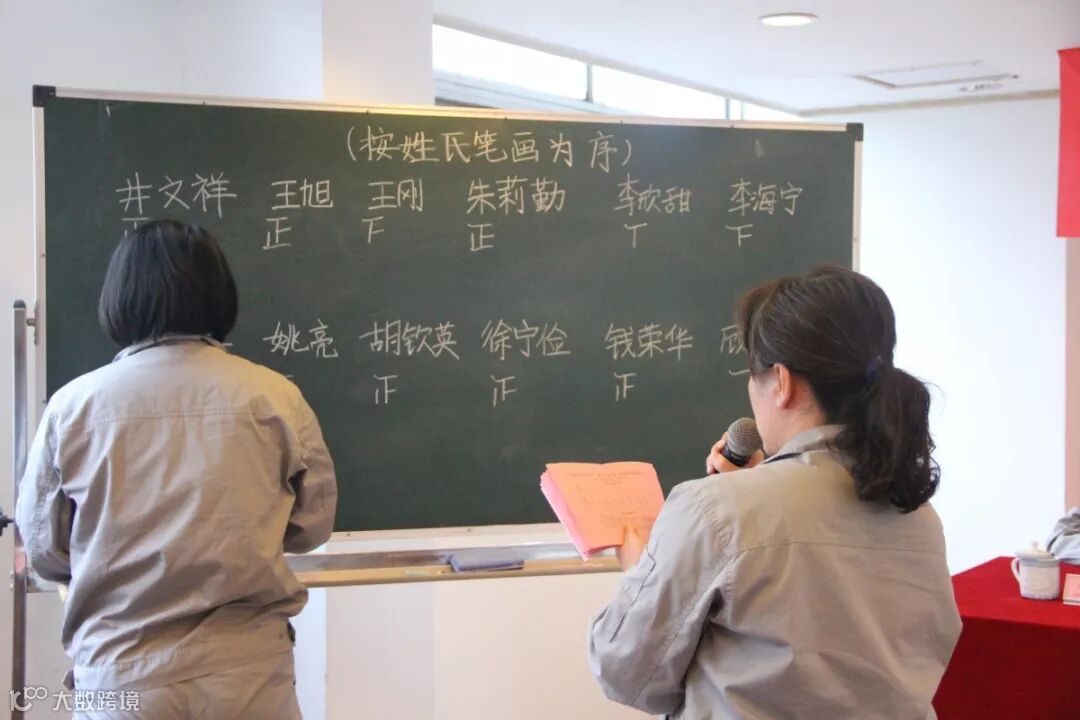 (按姓氏笔画为序)
井文祥 王旭 王刚 朱莉勤 李欣甜 李海宁
正 正 下 正 丅 下
姚亮 胡钦英 徐宁俭 钱荣华
正 正 正
大数跨境